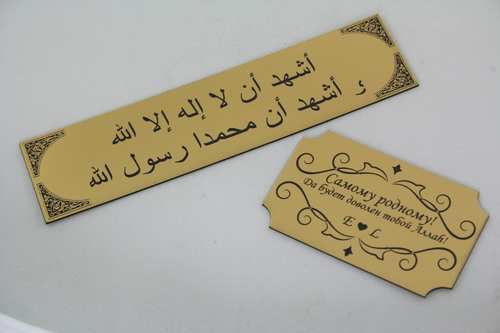 أشهد أن لا إله إلا الله
و أشهد أن محمدا رسول الله
Самому родному!
Да будет доволен тобой Аллаh!
E ♥ L